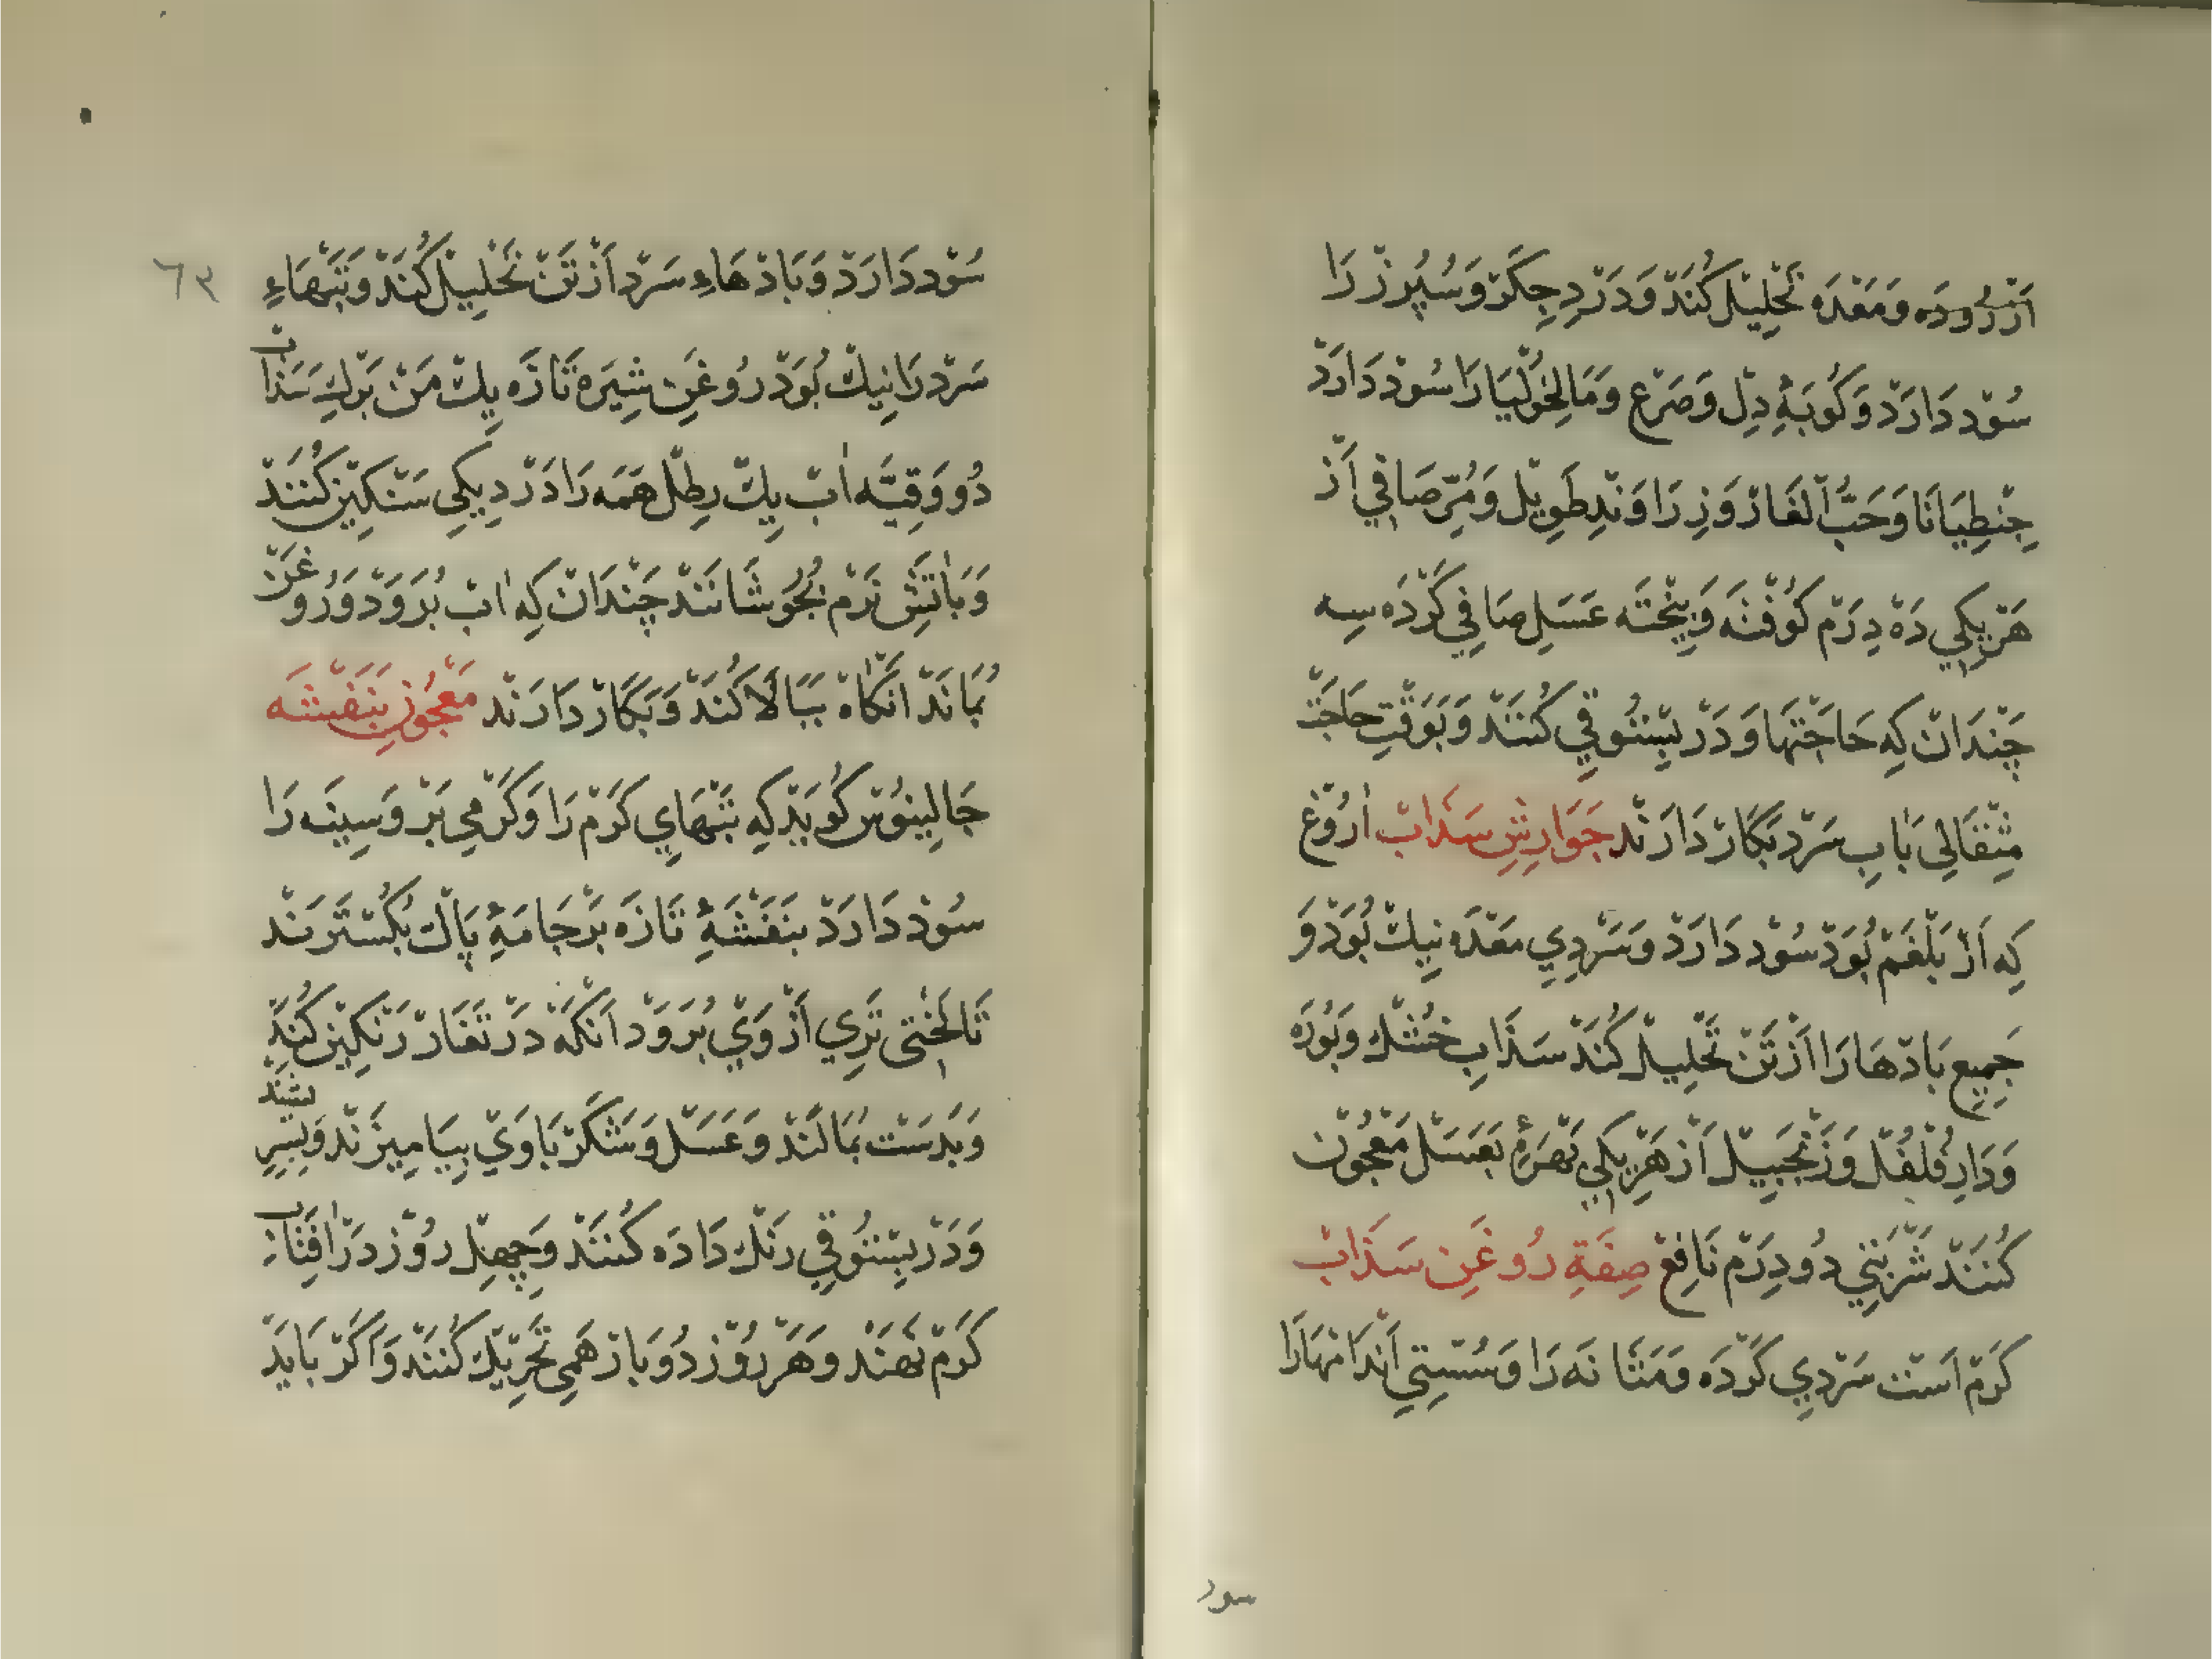 اَزْرُودَه وَمَعْدَه تَحْلِیْل کُنَدْ وَدَرْدِ جِکَرْ وَسُپُرز رَا
سُوْد دَارَدْ وَکُوبَۀِ دِل وَصَرْع وَمَالِخُولْیَا رَا سُوْد دَارَدْ
جِنطِیَانَا وَحَبُّ الْغَارْ وَزِرَاوَنْدِ طَوِیْل وَمُرِّ صَافِي اَزْ
هَرْ یِکِي دَهْ دِرَمْ کُوفْتَه وَبِیخْتَه عَسَلِ صَافِي کَرْدَه سِه
چَنْدَانْ کِه حَاجَتْهَا وَدَرْ بِسْتُوقِي کُنَنْدْ وَبَوَقْتِ حَاجَتْ
مِثْقَالِی بَابِ سَرْد بَکَارْ دَارَنْد جَوَارِشِ سَذَابْ اُرُوْغ
کِه اَزْ بَلْغَمْ بُوَدْ سُوْد دَارَدْ وَسَرْدِي مَعْدَه نِیكْ بُوَدْ وَ
جَمِیعِ بَادْهَا رَا اَزْ تَنْ تَحْلِیْل کُنَدْ سَذَابِ خُشْك وَبُورَه
وَدَارِ فُلْفُلْ وَزَنْجَبِیْل اَزْ هَرْ یِکِي بَهْرَۀِ بَعَسَلْ مَعْجُوْن
کُنَنْدْ شَرْبَتِي دُو دِرَمْ نَافِعْ صِفَةِ رُوغَنِ سَذَابْ
کَرَمْ اَسْت سَرْدِي کُرْدَه وَمَثَانَه رَا وَسُسْتِي اَنْدَامْهَا رَا
سود
٦٣
سُوْد دَارَدْ وَبَادْهَاءِ سَرْد اَزْ تَنْ تَحْلِیْل کُنَدْ وَتَبْهَاءِ
سَرْد رَا نِیكْ بُوَدْ رُوغَنِ شِیَرَه تَازَه یِكْ مَنْ بَرْكِ سَذَابْ
دُو وَقِیَّه اٰبْ یِكْ رِطْل هَمَه رَا دَرْ دِیکِي سَنْکِیْن کُنَنْدْ
وَبَاٰتَشْ نَرْم بُجُوشَانَنْدْ چَنْدَانْ کِه اٰبْ بُرَوَدْ وَرُوغَنْ
بُمَانَدْ اَنْکَاهْ بَبَالَا کُنَدْ وَبَکَارْ دَارَنْد مَعْجُونِ بَنَفْشَه
جَالِینُوسْ کُوَیَدْ کِه تَبْهَايِ کَرَمْ رَا وَکَرْمِي بَرْ وَسِینَه رَا
سُوْد دَارَدْ بَنَفْشَۀِ تَازَه بَرْ جَامَۀِ پَاكْ بُکُسْتَرَنْد
تَا لَخْتِی تَرِي اَزْ وَيْ بُرَوَدْ اَنْکَهْ دَرْ تَغَارْ رَنْکِیْن کُنَنْدْ
وَبَدَسْت بُمَالَنْد وَعَسَلْ وَشَکَرْ بَاوَيْ بِیَامِیزَنْد وَبِسِرِشَنْدْ
وَدَرْ بِسْتُوقِي رَنْك دَادَه کُنَنْد وَچِهِلْ رُوْز دَرْ اٰفْتَابْ
کَرَمْ نَهَنْد وَهَرْ رُوْز دُو بَارْ هَمِي تَحْرِیْك کُنَنْد وَاَکَرْ بَایَدْ